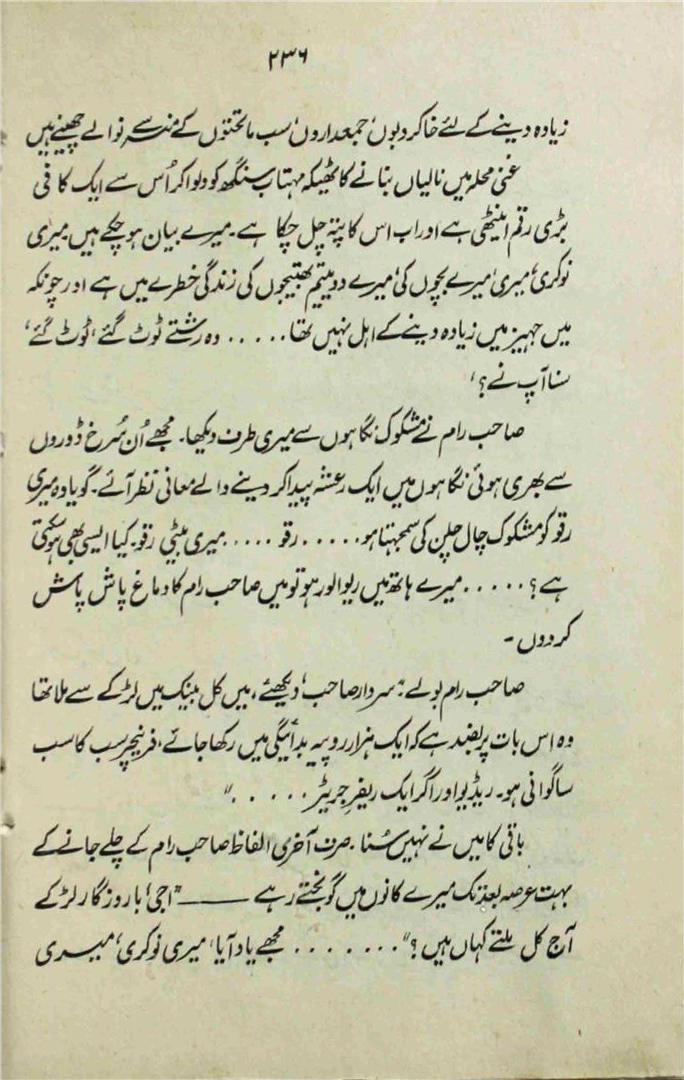 ۲۳۶
زیادہ دینے کے لئے خاکروبوں، جمعداروں، سب ماتحتوں کے منہ سے نوالے چھینے ہیں
غنی محلہ میں نالیاں بنانے کا ٹھیکہ مہتاب سنگھ کو دلوا کر اُس سے ایک کافی
بڑی رقم اینٹھی ہے اور اب اس کا پتہ چل چکا ہے۔ میرے بیان ہو چکے ہیں۔ میری
نوکری، میری، میرے بچوں کی، میرے دو یتیم بھتیجوں کی زندگی خطرے میں ہے اور چونکہ
میں جہیز میں زیادہ دینے کے اہل نہیں تھا..... وہ رشتے ٹوٹ گئے، ٹوٹ گئے،
سنا آپ نے؟'
صاحب رام نے مشکوک نگاہوں سے میری طرف دیکھا۔ مجھے اُن سُرخ ڈوروں
سے بھری ہوئی نگاہوں میں ایک رعشہ پیدا کر دینے والے معانی نظر آئے۔ گویا وہ میری
رقو کو مشکوک چال چلن کی سمجھتا ہو..... رقو ..... میری بیٹی رقو۔ کیا ایسی بھی ہو سکتی
ہے؟ ..... میرے ہاتھ میں ریوالور ہو تو میں صاحب رام کا دماغ پاش پاش
کر دوں۔
صاحب رام بولے: "سردار صاحب، دیکھئے، میں کل بینک میں لڑکے سے ملا تھا
وہ اس بات پر بضد ہے کہ ایک ہزار روپیہ بدائیگی میں رکھا جائے، فرنیچر سب کا سب
ساگوانی ہو۔ ریڈیو اور اگر ایک ریفریجریٹر ....."
باقی کا میں نے نہیں سُنا۔ صرف آخری الفاظ صاحب رام کے چلے جانے کے
بہت عرصہ بعد تک میرے کانوں میں گونجتے رہے —— "اجی! با روزگار لڑکے
آج کل ملتے کہاں ہیں؟" ........ مجھے یاد آیا، میری نوکری، میری